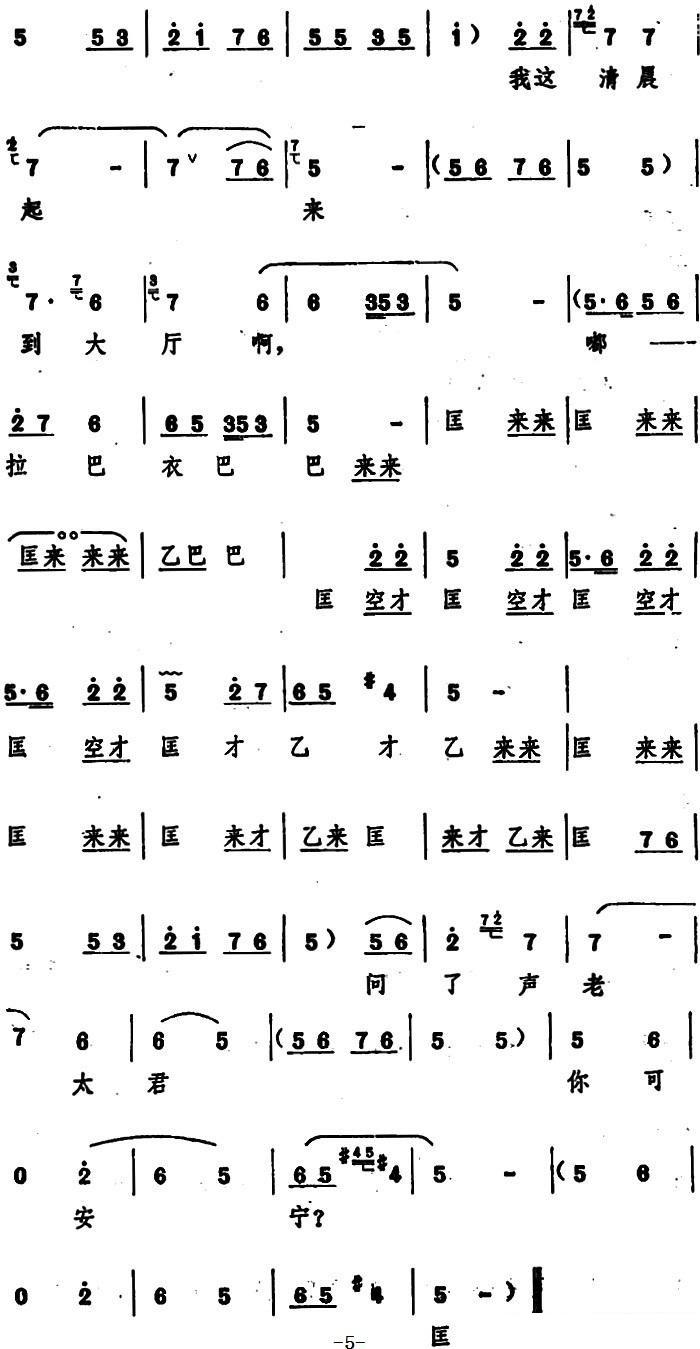 5 53 | 2̇1̇ 76 | 55 35 | 1̇) 2̇2̇ | 72̇ 7 7
我这 清晨
2̇ 7 - | 7 ˅ 76 | 7 5 - | (56 76 | 5 5) |
起 来
3 7· 7 6 | 3 7 6 | 6 353 | 5 - | (5·6 56 |
到 大 厅 啊, 嘟 ——
2̇7 6 | 65 353 | 5 - | 匡 来来 | 匡 来来 |
拉 巴 衣 巴 巴 来来
匡来 来来 | 乙巴 巴 | 2̇2̇ | 5 2̇2̇ | 5·6 2̇2̇ |
匡 空才 匡 空才 匡 空才
5·6 2̇2̇ | 5 2̇7 | 65 #4 | 5 - |
匡 空才 匡 才 乙 才 乙 来来 | 匡 来来 |
匡 来来 | 匡 来才 | 乙来 匡 | 来才 乙来 | 匡 76 |
5 53 | 2̇1̇ 76 | 5) 56 | 2̇ 72̇ 7 | 7 - |
问 了 声 老
7 6 | 6 5 | (56 76 | 5 5) | 5 6 |
太 君 你 可
0 2̇ | 6 5 | 65 #45 #4 | 5 - | (5 6 |
安 宁?
0 2̇ | 6 5 | 65 #4 | 5 - )
匡
-5-